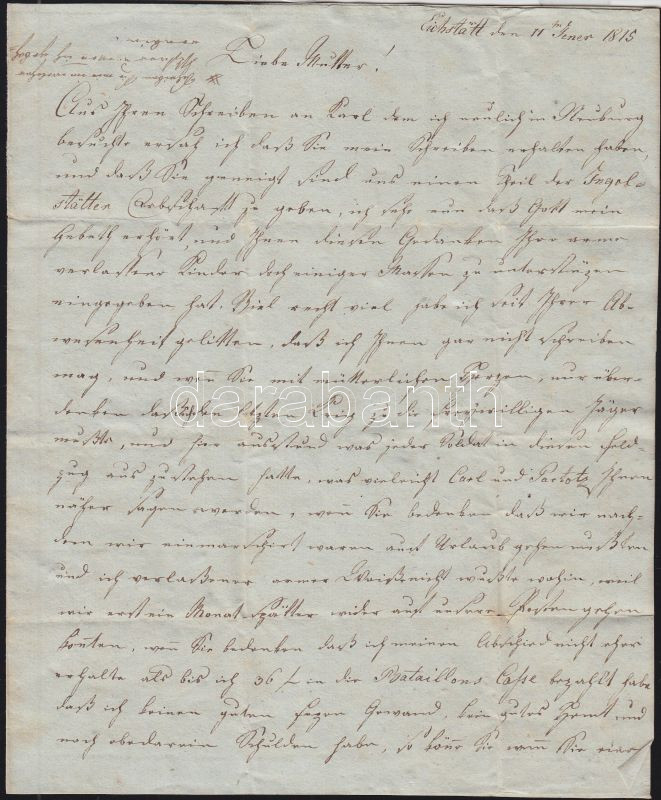 Eichstätt den 11 Jener 1815
Liebe Mutter!
Aus Ihren Schreiben an Karl dem ich neulich in Neuburg
besuchte ersah ich daß Sie mein Schreiben erhalten haben,
und daß Sie geneigt sind uns einen Theil der Ingol-
stätter Erbschaft zu geben, ich sehe nun daß Gott mein
Gebeth erhört, und Ihnen diesen Gedanken Ihre arme
verlassene Kinder doch einiger Massen zu unterstüzen
eingegeben hat. Viel recht viel habe ich seit Ihrer Ab-
wesenheit gelitten, daß ich Ihnen gar nicht schreiben
mag, und wenn Sie mit mütterlichen Herzen, nur über-
denken daß ich den letzten Krieg zu die freywilligen Jäger
mußte, und hier ausstund was jeder Soldat in diesen Feld-
zug aus zu stehen hatte, was vieleicht Carl und Ihnen
näher sagen werden, wenn Sie bedenken daß wir nach-
dem wir einmarschirt waren auf Urlaub gehen mußten
und ich verlaßener armer Waiß nicht wußte wohin, weil
wir erst ein Monat spätter wider auf unsere Posten gehen
konnten, wenn Sie bedenken daß ich meinen Abschied nicht eher
erhalte als bis ich 36 f in die Bataillons Casse bezahlt habe
daß ich keinen guten Gewand, kein gutes Hemt und
noch obedarein Schulden habe, so könne Sie wenn Sie
darabanth